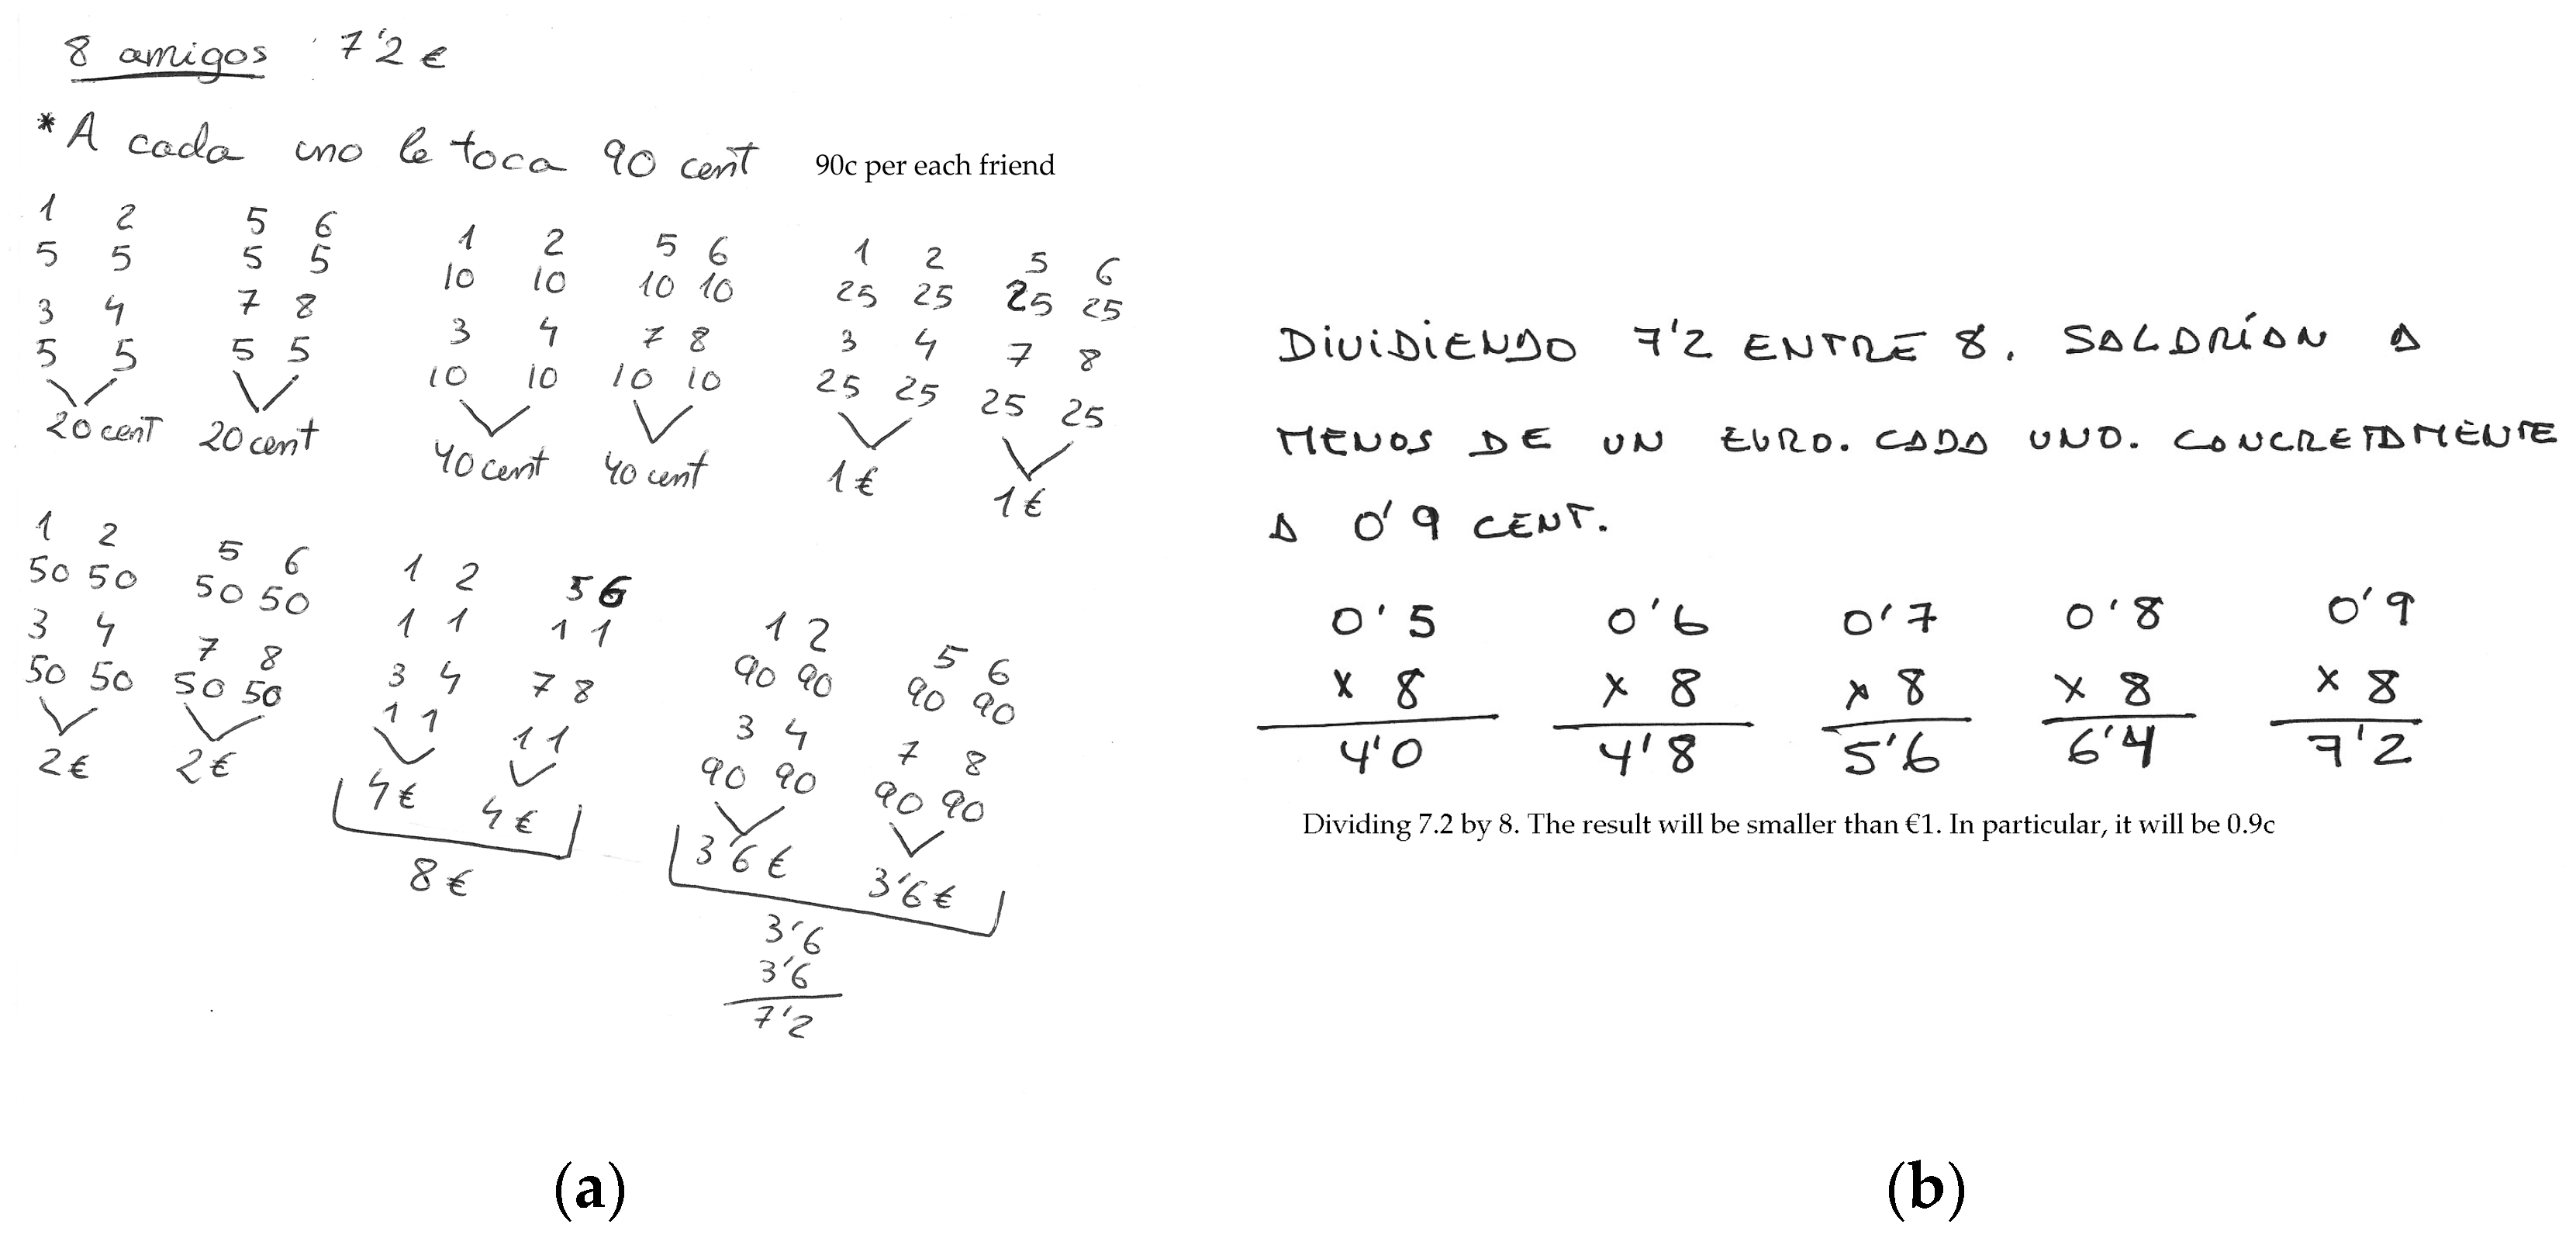 8 amigos 7'2 €
* A cada uno le toca 90 cent 90c per each friend
1 2 5 6
5 5 5 5
3 4 7 8
5 5 5 5
20 cent 20 cent
1 2 5 6
10 10 10 10
3 4 7 8
10 10 10 10
40 cent 40 cent
1 2 5 6
25 25 25 25
3 4 7 8
25 25 25 25
1 € 1 €
1 2 5 6
50 50 50 50
3 4 7 8
50 50 50 50
2 € 2 €
1 2 5 6
1 1 1 1
3 4 7 8
1 1 1 1
4 € 4 €
8 €
1 2 5 6
90 90 90 90
3 4 7 8
90 90 90 90
3'6 € 3'6 €
3'6
3'6
7'2
(a)
DIVIDIENDO 7'2 ENTRE 8. SALDRÍAN A
MENOS DE UN EURO. CADA UNO. CONCRETAMENTE
A 0'9 CENT.
0'5 0'6 0'7 0'8 0'9
x 8 x 8 x 8 x 8 x 8
4'0 4'8 5'6 6'4 7'2
Dividing 7.2 by 8. The result will be smaller than €1. In particular, it will be 0.9c
(b)